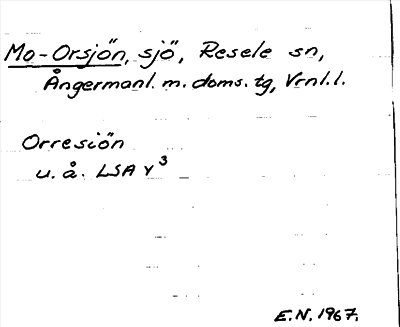 Mo-Orsjön, sjö, Resele sn,
Ångermanl. m. doms. tg, Vrnl.l.
Orresiön
u. å. LSA Y³
E.N. 1967.